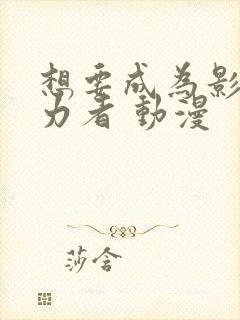 想要成為影
力者 動漫
莎含